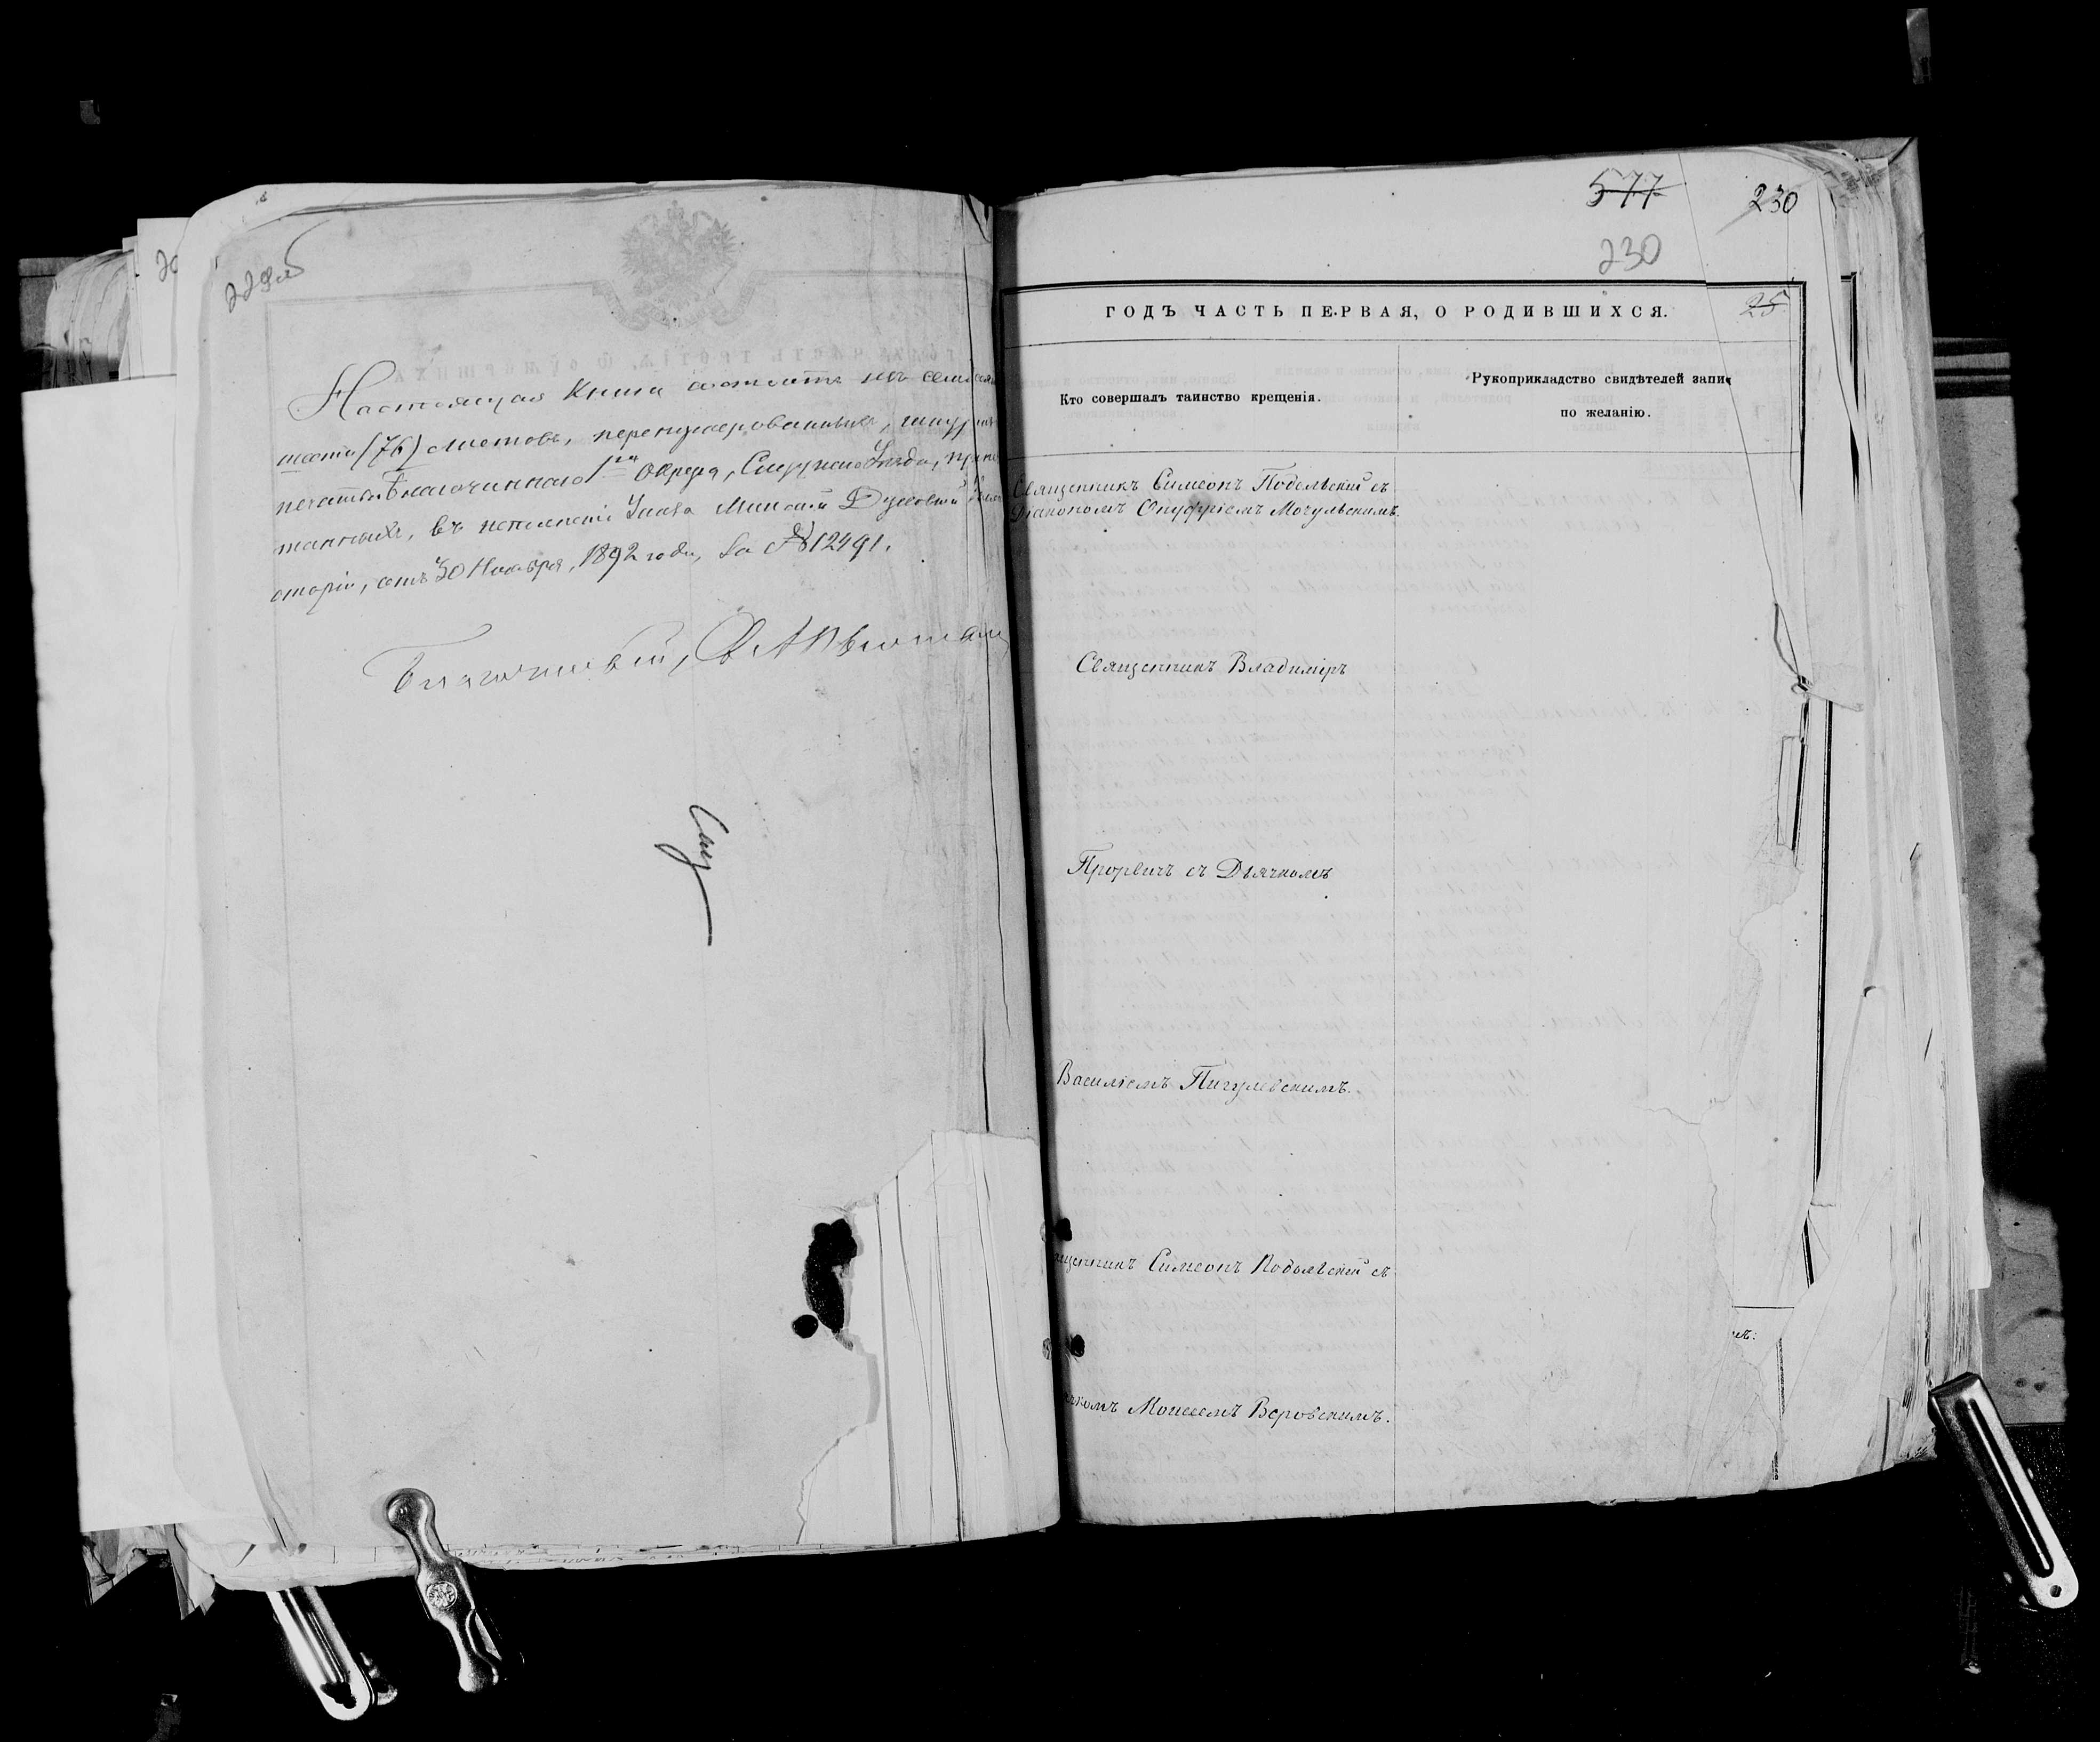 229об
Настоящая Книга состоитъ изъ семидеся
шести (76) листовъ, перенумерованныхъ, шнуром
печатью Благочиннаго 1го Округа, Слуцкаго Уѣзда, припе
танныхъ, въ исполненіе Указа Минской Духовной
сторіи, отъ 30 Ноября, 1892 года, за № 12491.
Благочинный,
Слу
577
230
230
25
ГОДЪ ЧАСТЬ ПЕРВАЯ, О РОДИВШИХСЯ.
Кто совершалъ таинство крещенія.
Рукоприкладство свидѣтелей запи
по желанію.
Священникъ Симеонъ Подольскій съ
Діакономъ Онуфріемъ Мочульскимъ.
Священникъ Владиміръ
Прорвичъ съ Дьячкомъ
Василіемъ Пигулевскимъ.
щенникъ Симеонъ Подольскій съ
чкомъ Моисеемъ Веровскимъ.